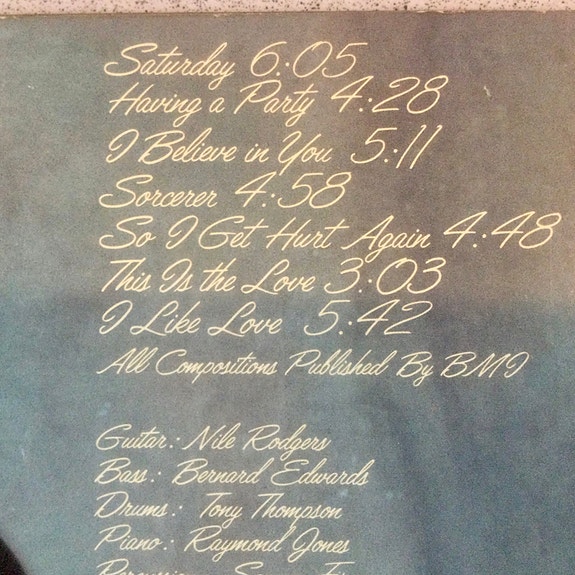 Saturday 6:05
Having a Party 4:28
I Believe in You 5:11
Sorcerer 4:58
So I Get Hurt Again 4:48
This Is the Love 3:03
I Like Love 5:42
All Compositions Published By BMI
Guitar: Nile Rodgers
Bass: Bernard Edwards
Drums: Tony Thompson
Piano: Raymond Jones